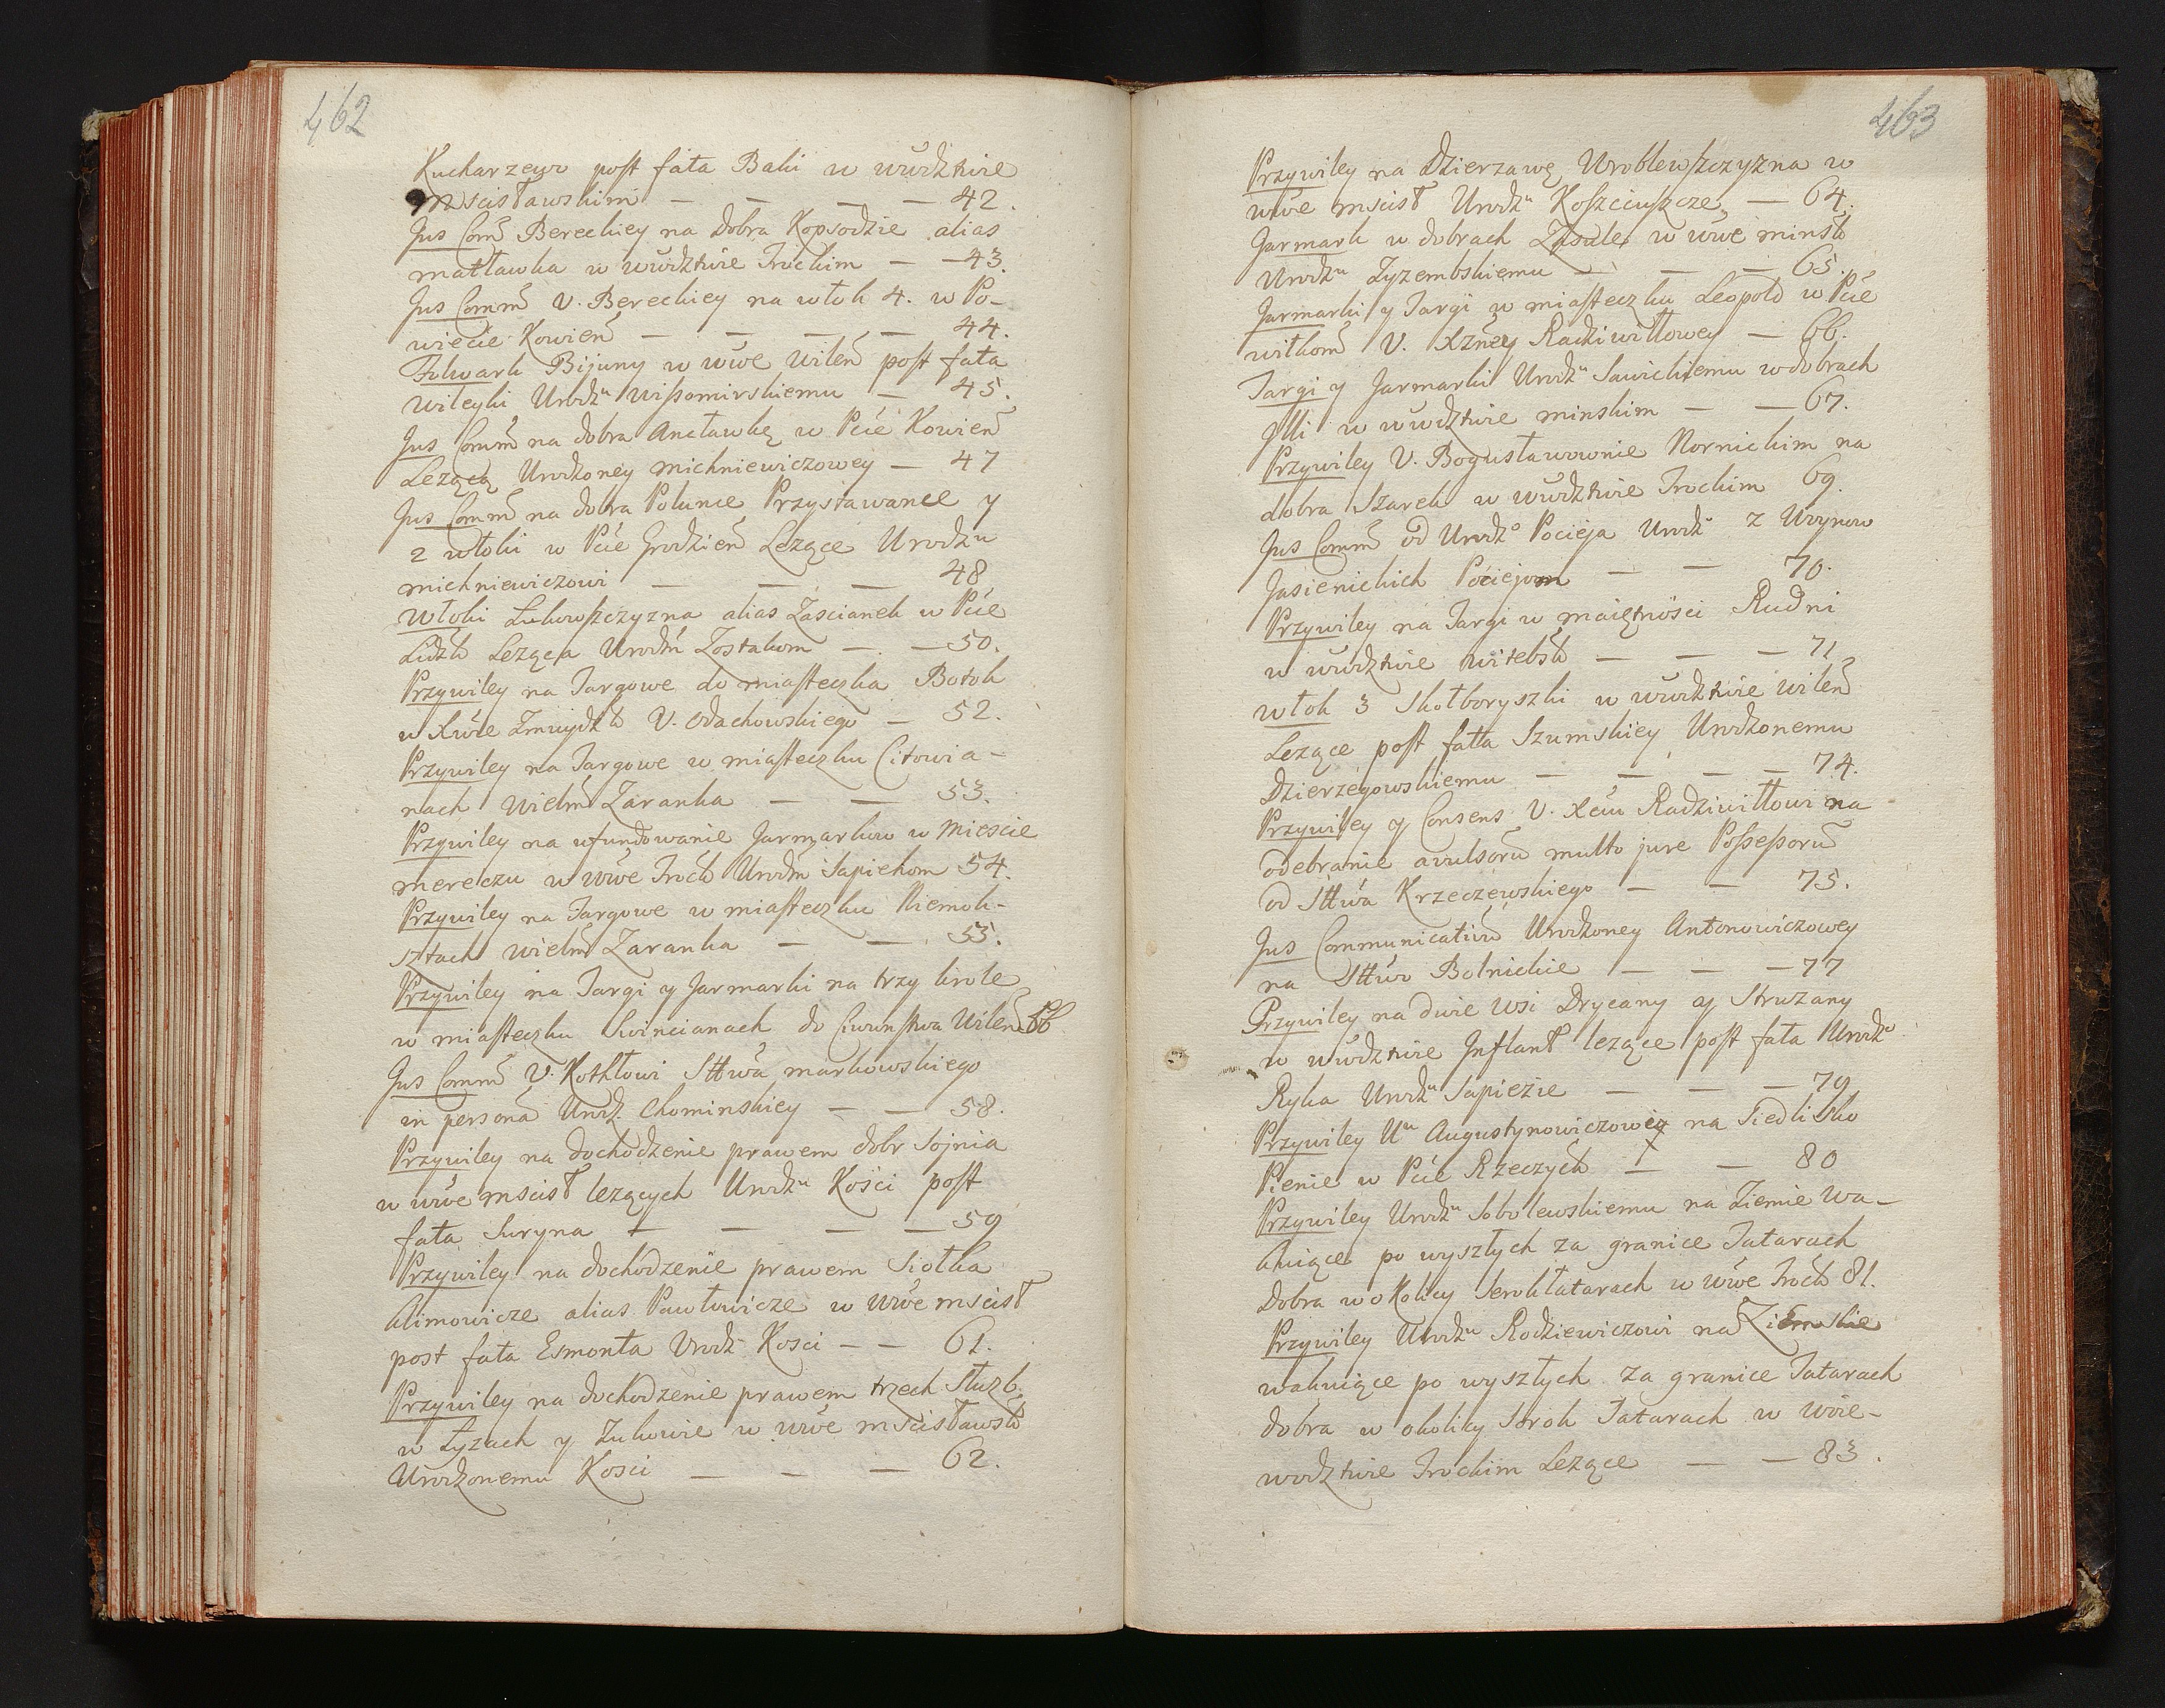 462
Kucharzew post fata Baki w wudztwie
Mscisławskim — — — — 42.
Jus Com̃ Bereckiey na Dobra Kopsodzie alias
matławka w wudztwie Trockim — — 43.
Jus Comm̃ V. Bereckiey na włok 4. w Po-
wiecie Kowień — — — — 44.
Folwark Bijuny w wwe wileń post fata
wileyki Urodzu wißomirskiemu — 45.
Jus Comm̃ na dobra Anctawkę w Pcie Kowień
Lezącą Urodzoney michniewiczowey — 47
Jus Comm̃ na dobra Polunce Przystawance y
2 włoki w Pcie Grodzień Lezące Urodzu
michniewiczowi — — — 48
Włoki Lukowszczyzna alias Zascianek w Pcie
Lidzk Lezącą Urodzm Zostakom — — 50.
Przywiley na Targowe do miasteczka Botok
w Xwie Zmuydzk V. Odachowskiego — 52.
Przywiley na Targowe w miasteczku Citowia-
nach Wielm Zaranka — — 53.
Przywiley na ufundowanie Jarmarkow w Miescie
mereczu w wwe Trock Urodzm Sapiehom 54.
Przywiley na Targowe w miasteczku Niemok-
sztach wielm Zaranka — — 55.
Przywiley na Targi y Jarmarki na trzy krole
w miasteczku Swincianach do Ciwunstwa Wileń 56
Jus Comm̃ V. Kotłłowi Sttwa markowskiego
in persona Urodz. Chominskiey — — 58.
Przywiley na dochodzenie prawem dobr Sojnia
w wwe mscisł lezących Urodzu Kosci post
fata Suryna — — — — 59
Przywiley na dochodzenie prawem Siołka
Klimowicze alias Pawłowicze w wwe mscisł
post fata Esmonta Urodz Kosci — — 61.
Przywiley na dochodzenie prawem trzech Słuzb
w Łyzach y Zukowie w wwe mscisławsk
Urodzonemu Kosci — — — 62.
463
Przywiley na Dzierzawę Wroblewszczyzna w
wwe mscisł Urodzu Koszciuszcze — 64.
Jarmark w dobrach Zasule w wwe minsk
Urodzu Zyzembskiemu — — — 65.
Jarmarki y Targi w miasteczku Leopold w Pcie
wiłkom V. Xzney Radziwiłłowey — 66.
Targi y Jarmarki Urodzu Sawickiemu w dobrach
Illi w wwdztwie minskim — — 67.
Przywiley V. Bogusławownie Nornickim na
dobra Szarek w wudztwie Trockim 69.
Jus Comm̃ od Urodzo Pocieja Urodz z Woynow
Jasienickich Pociejom — — 70.
Przywiley na Targi w maiętnosci Rudni
w wudztwie witebsk — — — 71
włok 3 Skołboryszki w wudztwie wileń
Lezące post fata Szumskiey Urodzonemu
Dzierzegowskiemu — — — — 74.
Przywiley y Consens V. Xciu Radziwiłłowi na
odebranie avulsorũ multo jure Possessorũ
od Sttwa Krzeczewskiego — — 75.
Jus Communicatiũ Urodzoney Antonowiczowey
na Sttwo Bolnickie — — — 77
Przywiley na dwie wsi Drycany y Struzany
w wudztwie Inflant lezące post fata Urodzo
Ryka Urodzu Sapiezie — — — 79
Przywiley Uu Augustynowiczowi na Siedlisko
Pienie w Pcie Rzeczyck — — 80
Przywiley Urodzu Sobolewskiemu na Ziemie wa-
kuiące po wyszłych za granice Tatarach
Dobra w okolicy Sorokłatarach w wwe Trock 81.
Przywiley Urodzu Rodziewiczowi na Ziemskie
wakuiące po wyszłych za granice Tatarach
dobra w okolicy Sorok Tatarach w woie-
wodztwie Trockim Lezące — — 83.